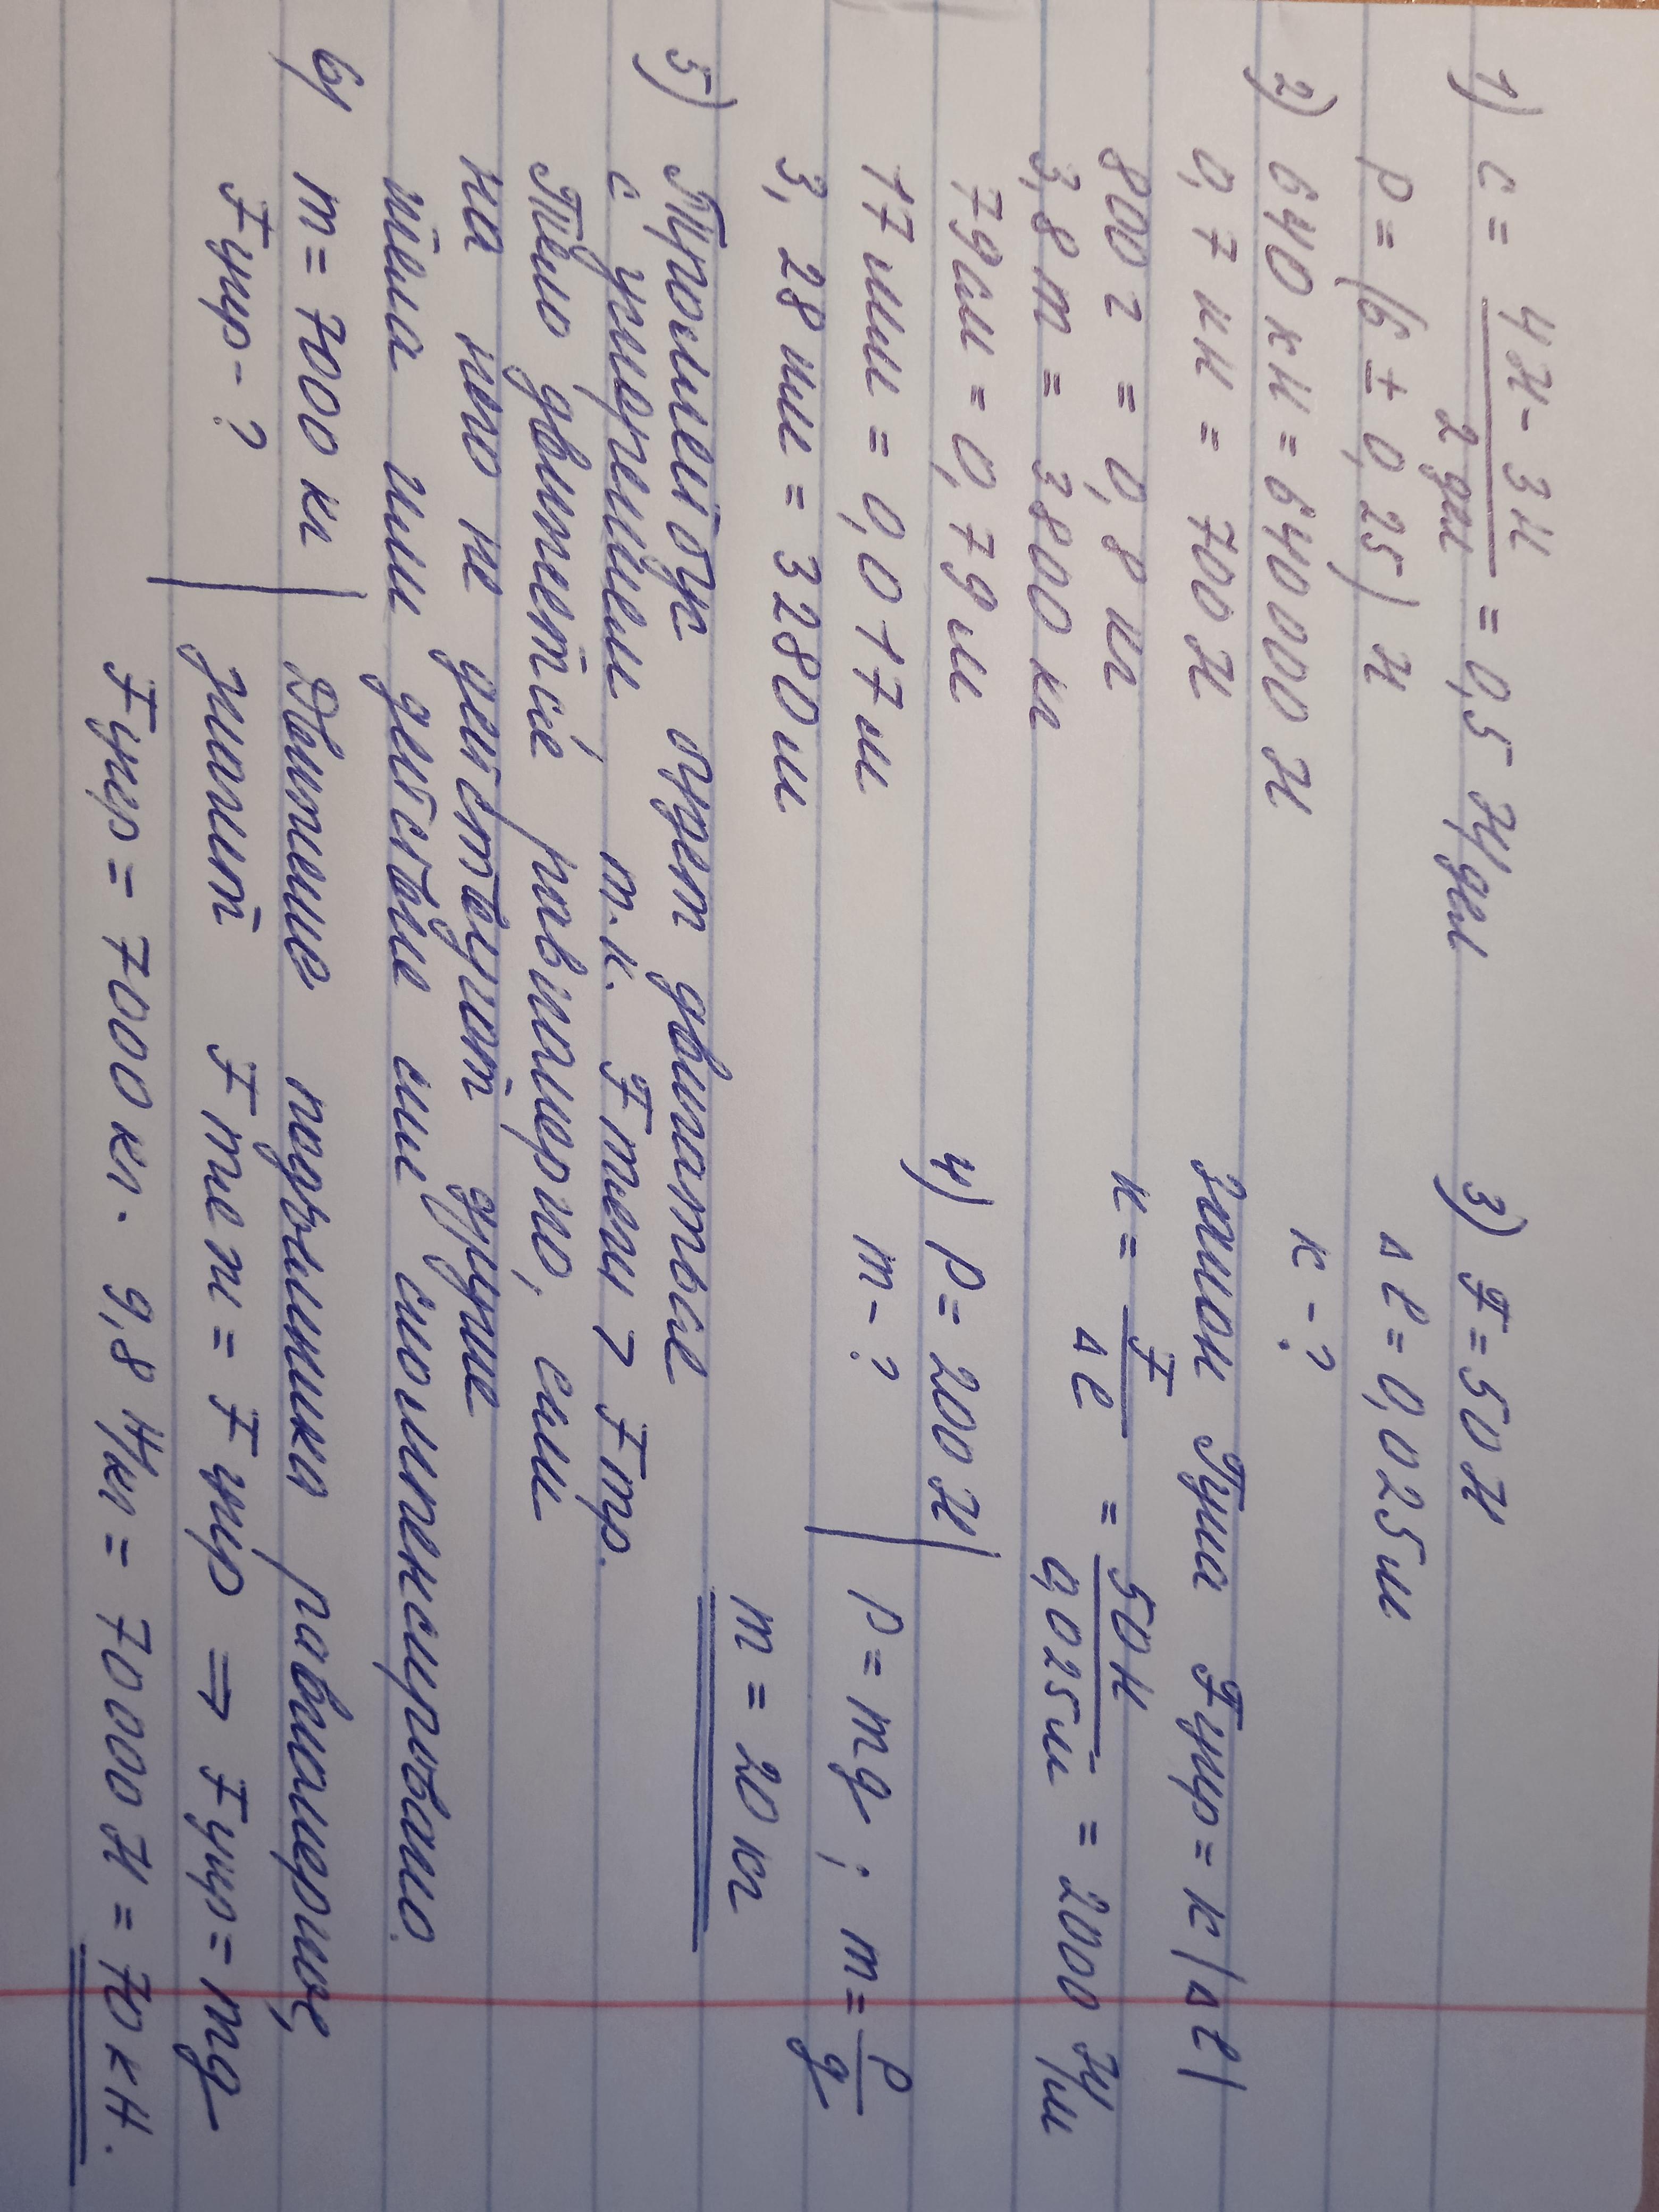 1) c = (4Н - 3Н) / 2 дел = 0,5 Н/дел
P = (6 ± 0,25) Н
2) 640 кН = 640000 Н
0,7 кН = 700 Н
800 г = 0,8 кг
3,8 т = 3800 кг
79 см = 0,79 м
17 мм = 0,017 м
3,28 км = 3280 м
3) F = 50 Н
Δl = 0,025 м
к - ?
Закон Гука Fупр = к|Δl|
к = F / Δl = 50 Н / 0,025 м = 2000 Н/м
4) P = 200 Н
m - ?
P = mg ; m = P / g
m = 20 кг
5) Троллейбус будет двигаться
с ускорением, т.к. Fтяги > Fтр.
Тело движется равномерно, если
на него не действуют другие
тела или действие сил скомпенсировано.
6) m = 7000 кг
Fупр - ?
Движение подъемника равномерное,
значит Fтяж = Fупр ⇒ Fупр = mg
Fупр = 7000 кг · 9,8 Н/кг = 70000 Н = 70 кН.